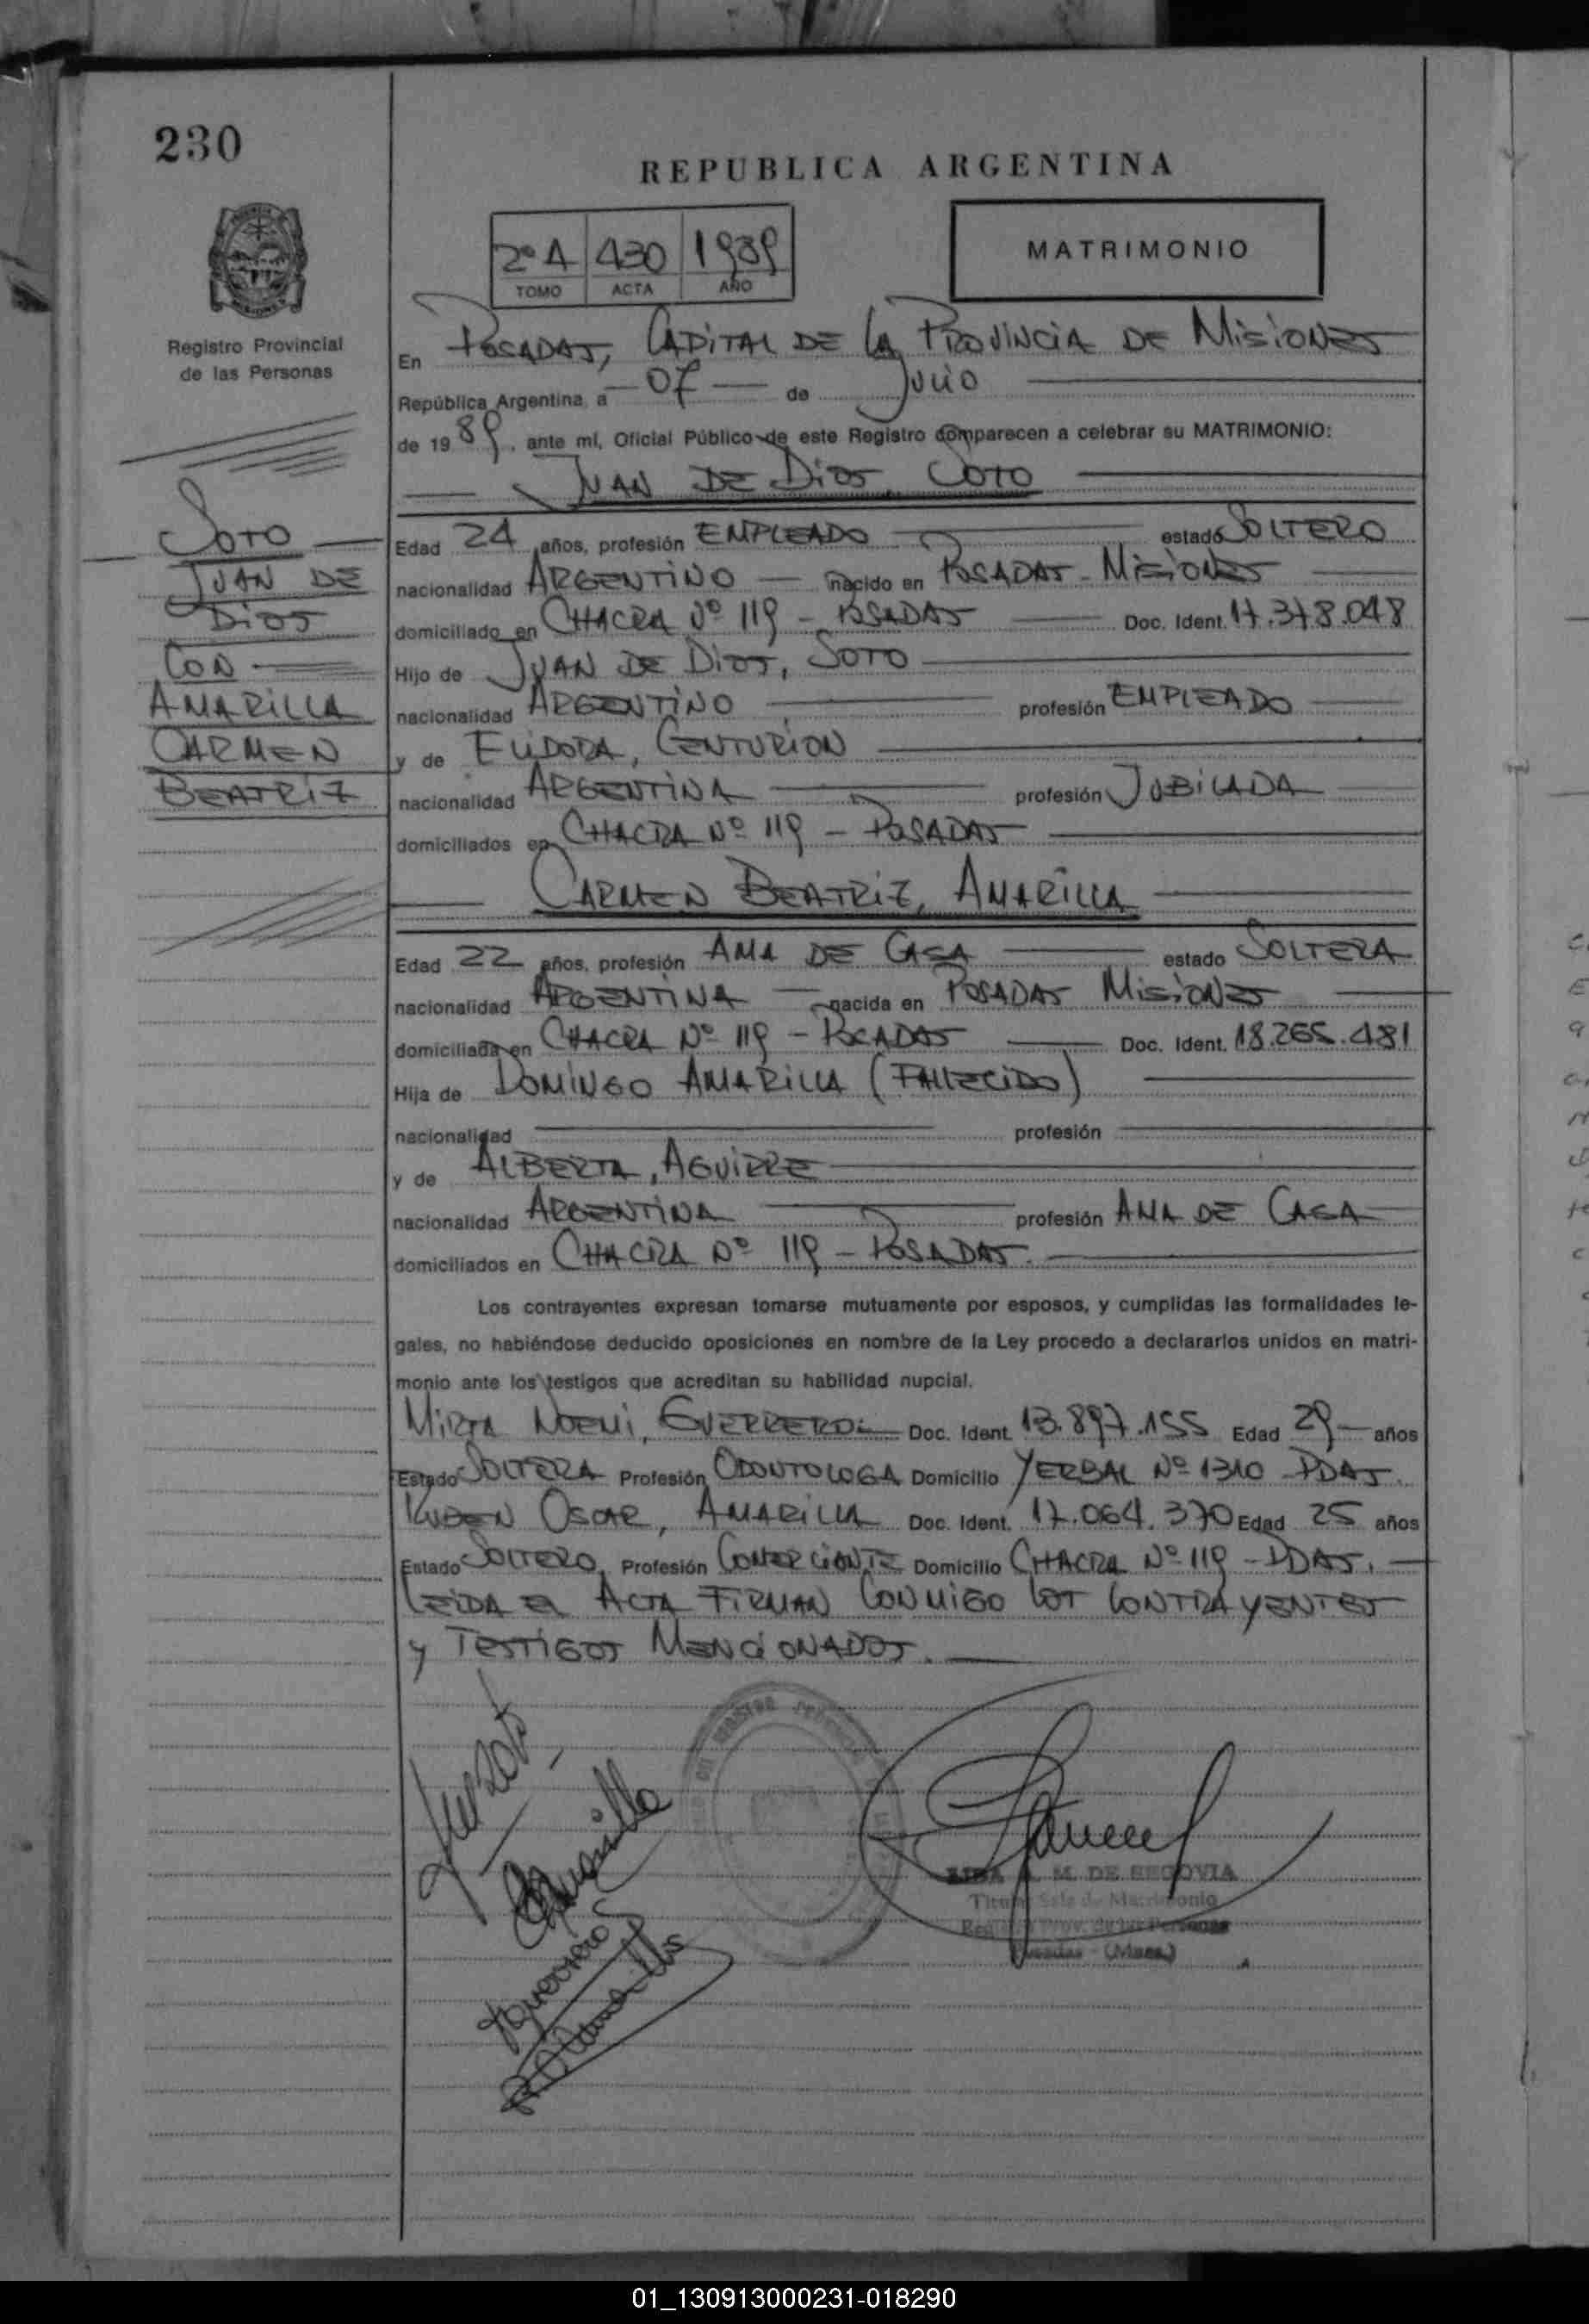 230
REPUBLICA ARGENTINA
2º A 430 1989
TOMO ACTA AÑO
MATRIMONIO
Registro Provincial
de las Personas
SOTO
JUAN DE
DIOS
CON
AMARILLA
CARMEN
BEATRIZ
En POSADAS, CAPITAL DE LA PROVINCIA DE MISIONES
República Argentina, a 07 de JULIO
de 1989, ante mí, Oficial Público de este Registro comparecen a celebrar su MATRIMONIO:
JUAN DE DIOS, SOTO
Edad 24 años, profesión EMPLEADO estado SOLTERO
nacionalidad ARGENTINO nacido en POSADAS - MISIONES
domiciliado en CHACRA Nº 119 - POSADAS Doc. Ident. 17.378.048
Hijo de JUAN DE DIOS, SOTO
nacionalidad ARGENTINO profesión EMPLEADO
y de ELIDORA, CENTURION
nacionalidad ARGENTINA profesión JUBILADA
domiciliados en CHACRA Nº 119 - POSADAS
CARMEN BEATRIZ, AMARILLA
Edad 22 años, profesión AMA DE CASA estado SOLTERA
nacionalidad ARGENTINA nacida en POSADAS MISIONES
domiciliada en CHACRA Nº 119 - POSADAS Doc. Ident. 18.265.481
Hija de DOMINGO AMARILLA (FALLECIDO)
nacionalidad profesión
y de ALBERTA, AGUIRRE
nacionalidad ARGENTINA profesión AMA DE CASA
domiciliados en CHACRA Nº 119 - POSADAS.
Los contrayentes expresan tomarse mutuamente por esposos, y cumplidas las formalidades le-
gales, no habiéndose deducido oposiciones en nombre de la Ley procedo a declararlos unidos en matri-
monio ante los testigos que acreditan su habilidad nupcial.
MIRTA NOEMI, GUERRERO: Doc. Ident. 13.897.155 Edad 29 años
Estado SOLTERA Profesión ODONTOLOGA Domicilio YERBAL Nº 1310 PDAS.
RUBEN OSCAR, AMARILLA Doc. Ident. 17.064.370 Edad 25 años
Estado SOLTERO, Profesión COMERCIANTE Domicilio CHACRA Nº 119 - PDAS.
LEIDA EL ACTA FIRMAN CONMIGO LOS CONTRAYENTES
y TESTIGOS MENCIONADOS.
M. DE SEGOVIA
Sala de Matrimonio
Prov. de las Personas
Posadas - (Mnes.)
01_130913000231-018290